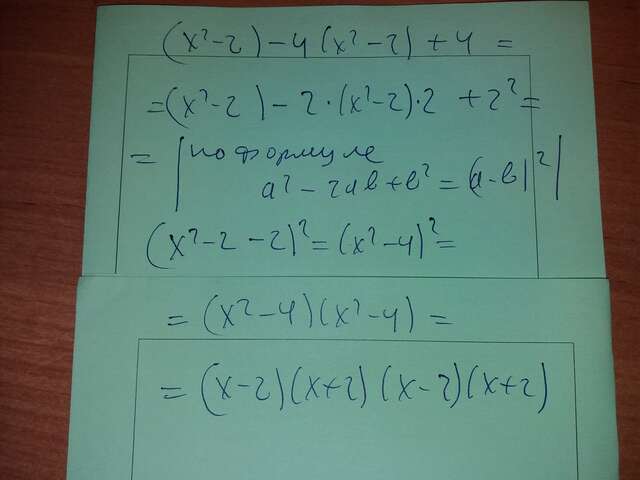 (x²-2)-4(x²-2)+4 =
=(x²-2)-2·(x²-2)·2+2²=
= | по формуле
a²-2ab+b²=(a-b)² |
(x²-2-2)²=(x²-4)²=
=(x²-4)(x²-4)=
=(x-2)(x+2)(x-2)(x+2)